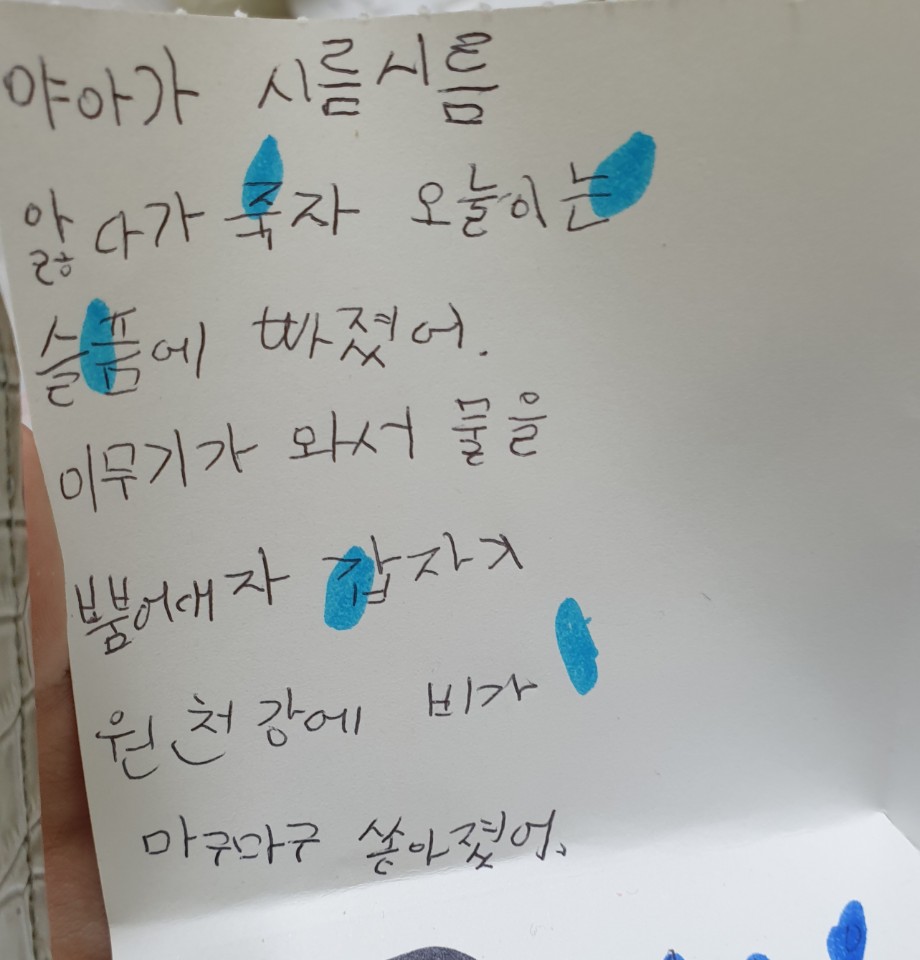 야아가 시름시름
앓다가 죽자 오늘이는
슬픔에 빠졌어.
이무기가 와서 물을
뿜어대자 갑자기
원천강에 비가
마구마구 쏟아졌어.